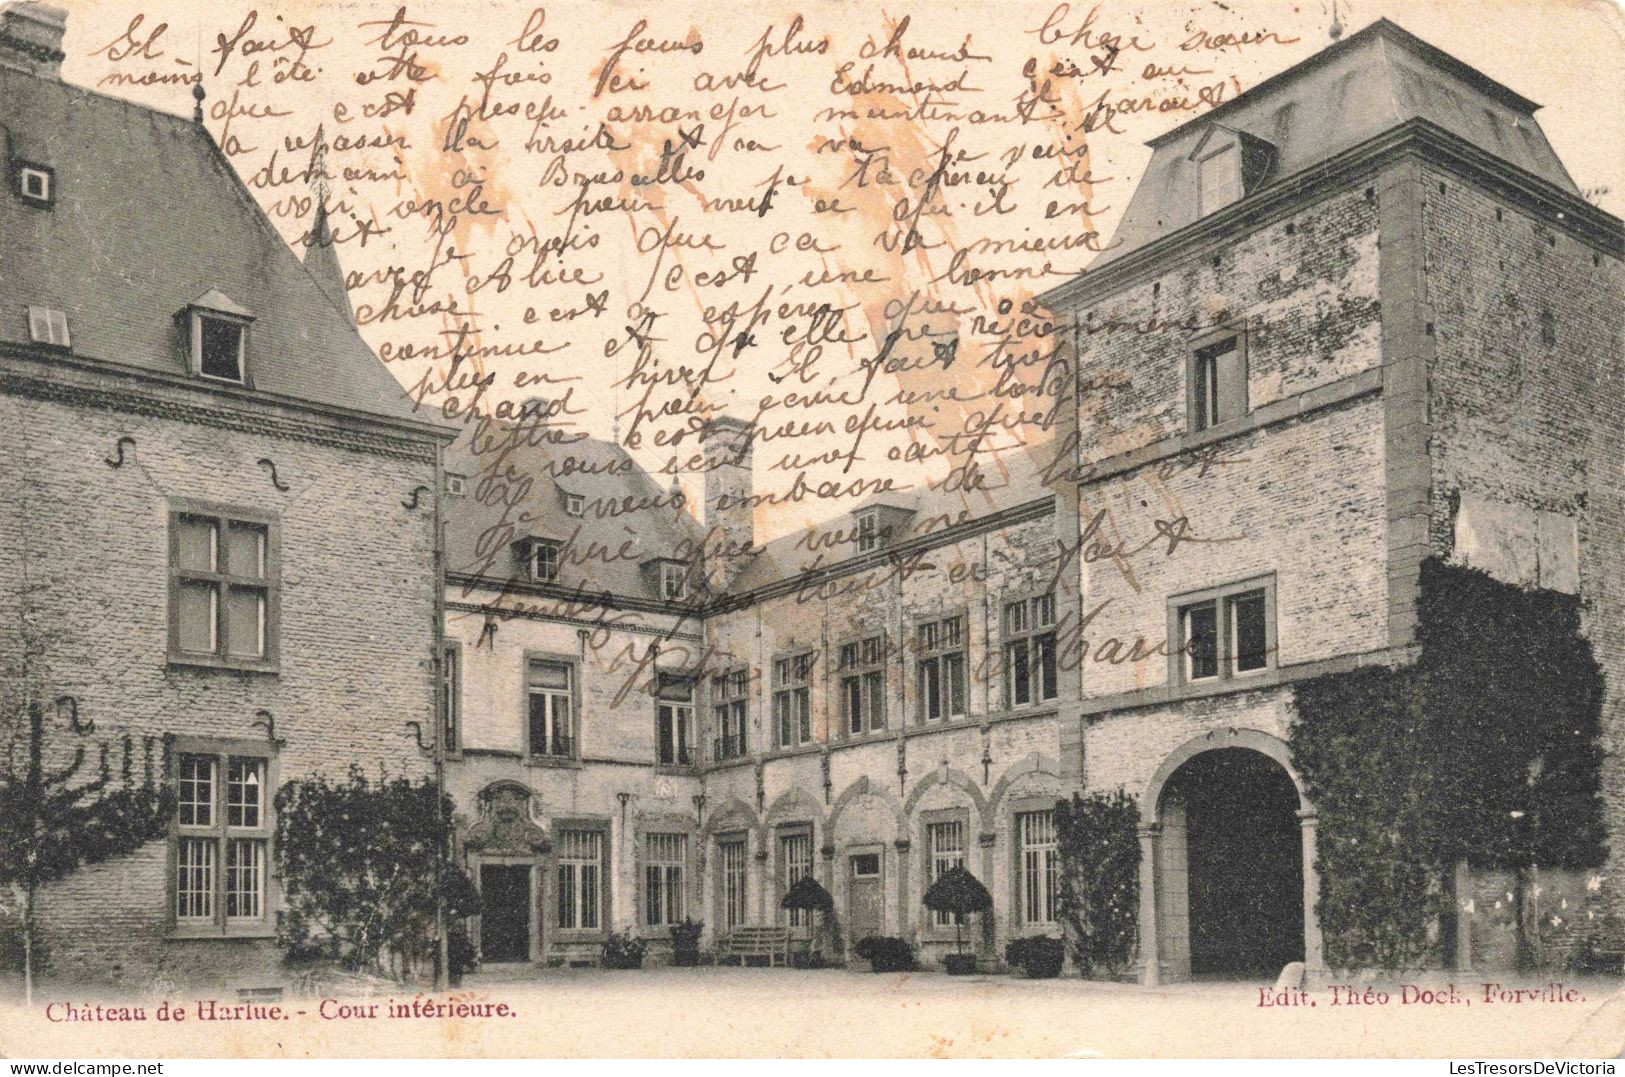 Chère sœur
Il fait tous les jours plus chaud c'est au
moins l'été cette fois ci avec Edmond il parait
que c'est presqu arranger maintenant
a repasser la visite et ca va Je vais
demain a Bruxelles je tacherai de
voir oncle pour voir ce qu'il en
dit. Je crois que ca va mieux
avec Alice c'est une bonne
chose c'est a espérer que ca
continue et qu'elle ne recommence
plus en hiver Il fait trop
chaud pour écrire une longue
lettre c'est pourquoi que
je vous écris une carte
Je vous embrasse de
J'espère que vous ne
fendez pas tout a fait
Votre sœur Marie
Château de Harlue. - Cour intérieure.
Edit. Théo Dock, Forville.
LesTresorsDeVictoria